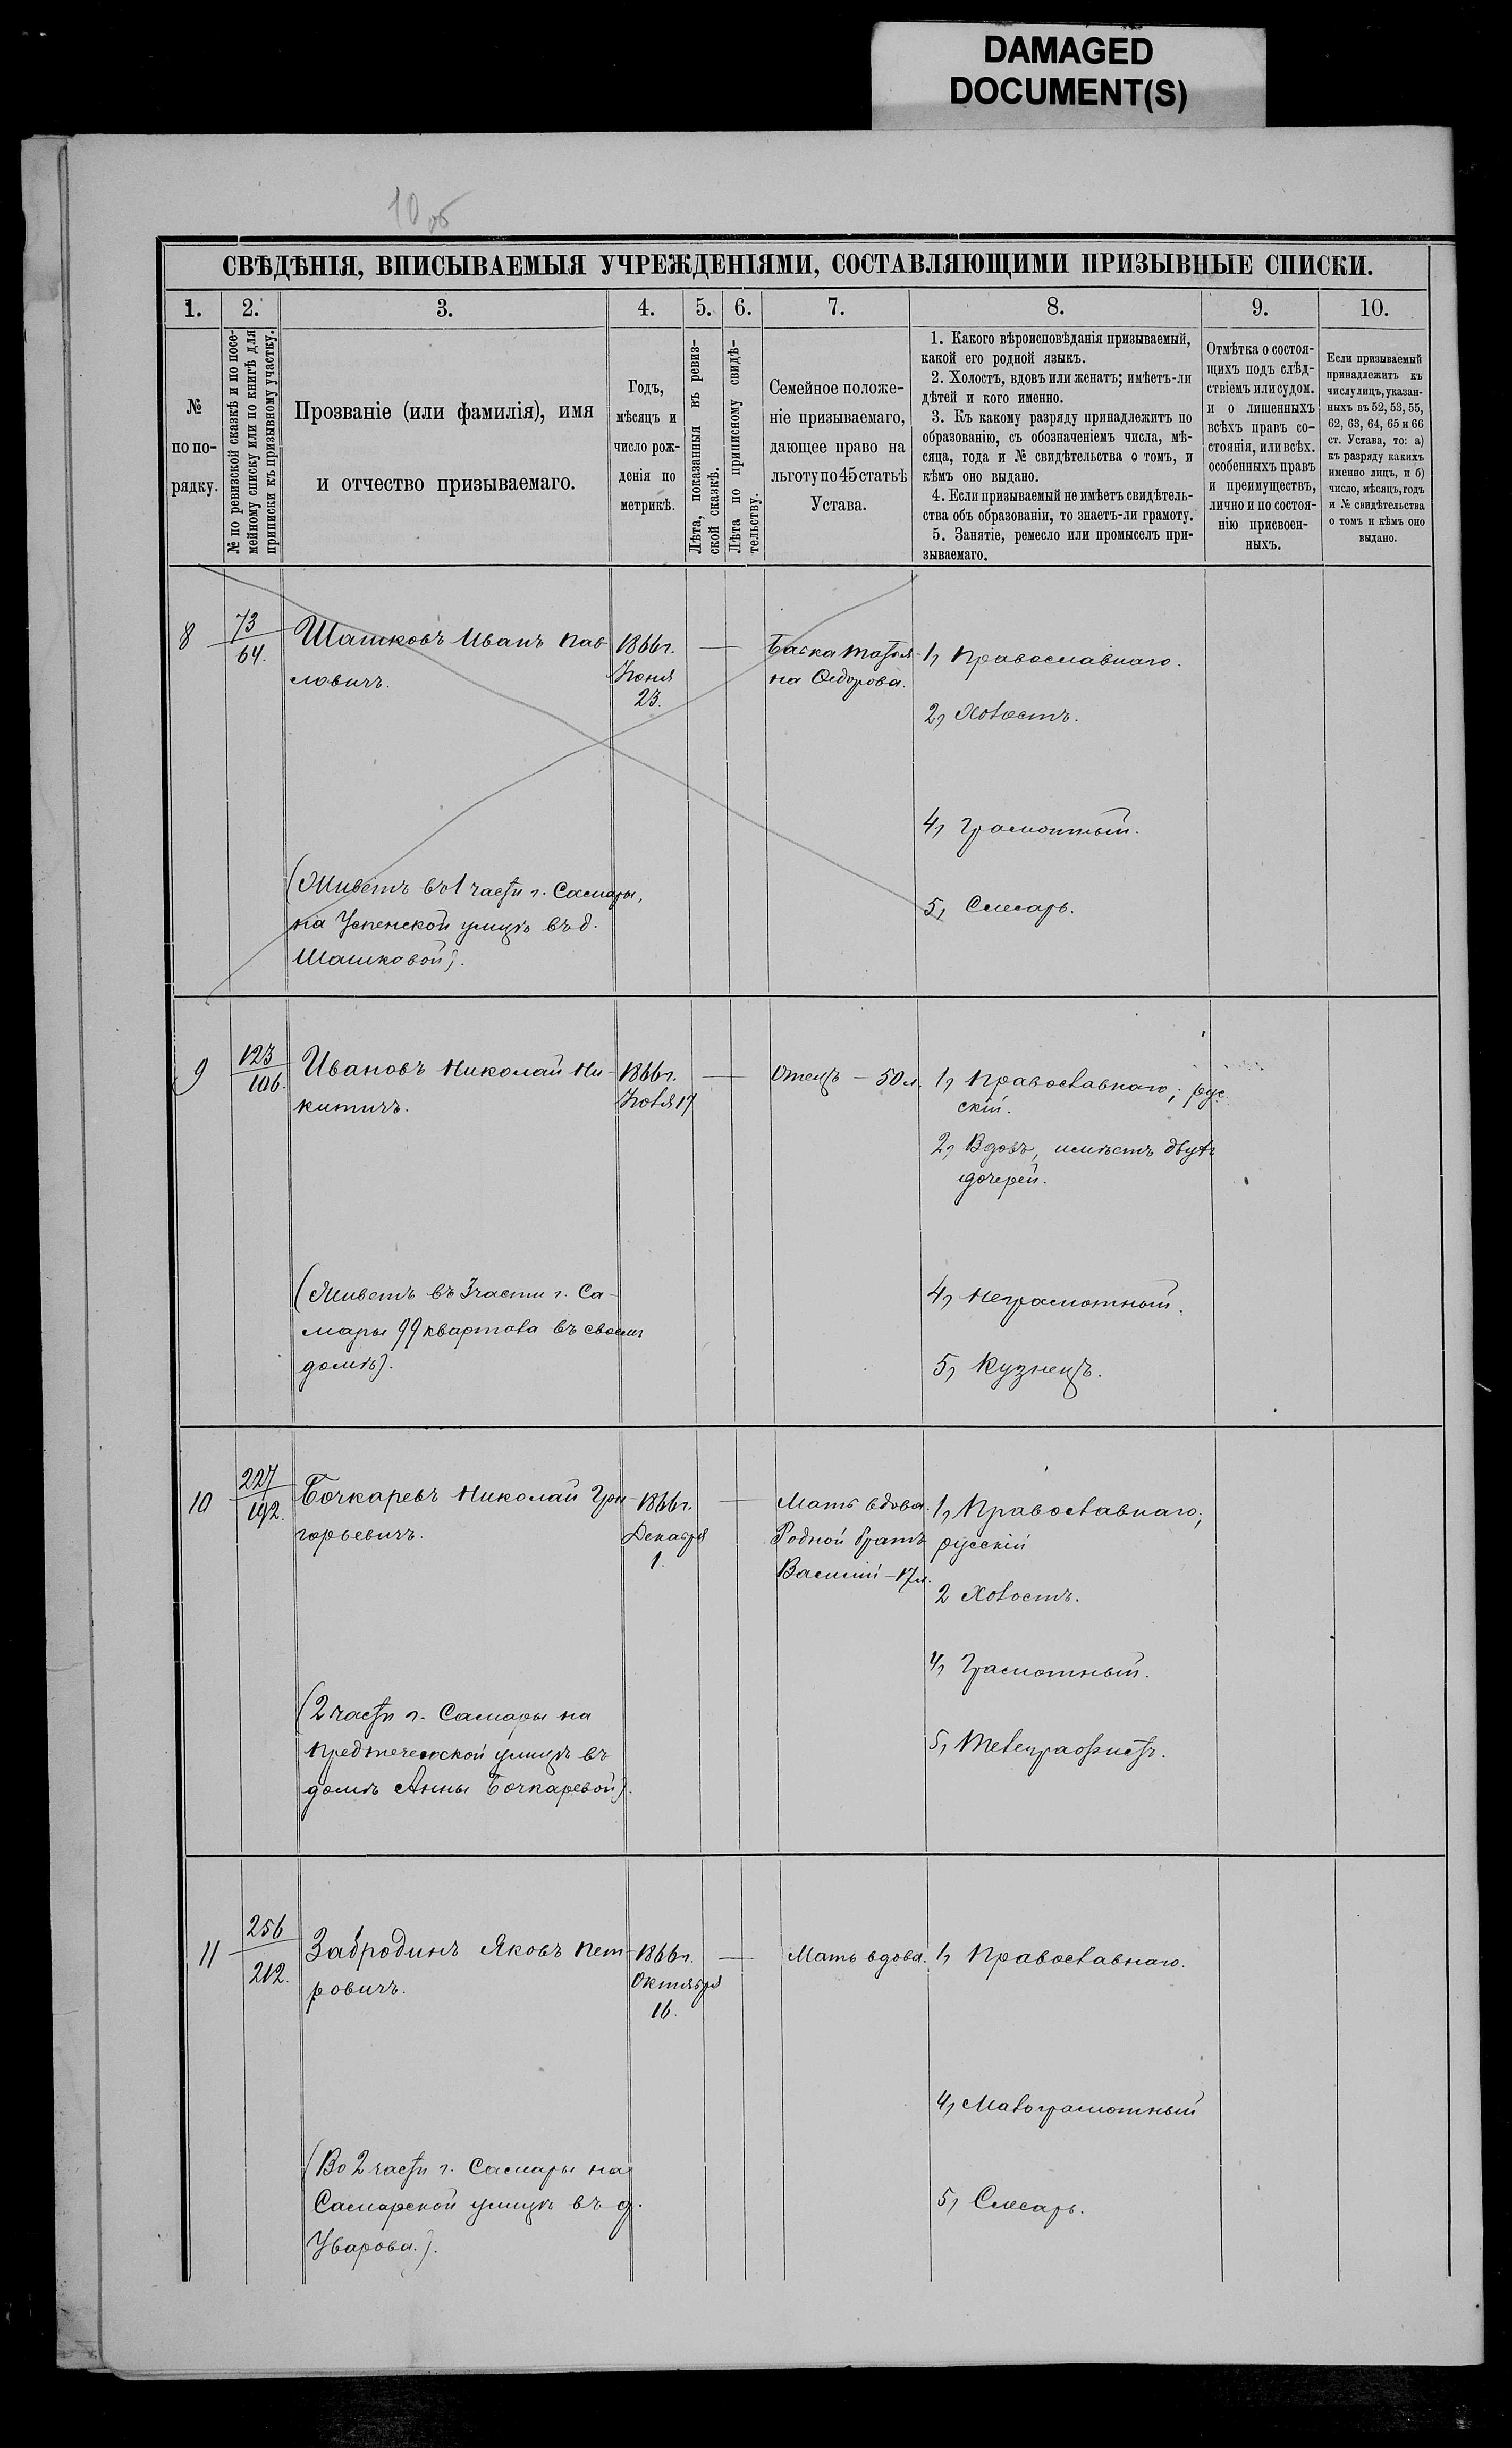 DAMAGED
DOCUMENT(S)
10 об
СВѢДѢНІЯ, ВПИСЫВАЕМЫЯ УЧРЕЖДЕНІЯМИ, СОСТАВЛЯЮЩИМИ ПРИЗЫВНЫЕ СПИСКИ.
1. 2. 3. 4. 5. 6. 7. 8. 9. 10.
№
по по-
рядку.
№ по ревизской сказкѣ и по посе-
мейному списку или по книгѣ для
приписки къ призывному участку.
Прозваніе (или фамилія), имя
и отчество призываемаго.
Годъ,
мѣсяцъ и
число рож-
денія по
метрикѣ.
Лѣта, показанныя въ ревиз-
ской сказкѣ.
Лѣта по приписному свидѣ-
тельству.
Семейное положе-
ніе призываемаго,
дающее право на
льготу по 45 статьѣ
Устава.
1. Какого вѣроисповѣданія призываемый,
какой его родной языкъ.
2. Холостъ, вдовъ или женатъ; имѣетъ-ли
дѣтей и кого именно.
3. Къ какому разряду принадлежитъ по
образованію, съ обозначеніемъ числа, мѣ-
сяца, года и № свидѣтельства о томъ, и
кѣмъ оно выдано.
4. Если призываемый не имѣетъ свидѣтель-
ства объ образованіи, то знаетъ-ли грамоту.
5. Занятіе, ремесло или промыселъ при-
зываемаго.
Отмѣтка о состоя-
щихъ подъ слѣд-
ствіемъ или судом.
и о лишенныхъ
всѣхъ правъ со-
стоянія, или всѣх.
особенныхъ правъ
и преимуществъ,
лично и по состоя-
нію присвоен-
ныхъ.
Если призываемый
принадлежитъ къ
числу лицъ, указан-
ныхъ въ 52, 53, 55,
62, 63, 64, 65 и 66
ст. Устава, то: а)
къ разряду какихъ
именно лицъ, и б)
число, мѣсяцъ, годъ
и № свидѣтельства
о томъ и кѣмъ оно
выдано.
8
73
64.
Шашковъ Иванъ Пав-
ловичъ.
(Живетъ въ 1 части г. Самары,
на Успенской улицѣ въ д.
Шашковой).
1866 г.
Іюня
23.
—
на Федорова.
1, Православнаго.
2, Холостъ.
4, Грамотный.
5, Слесарь.
9
123
106.
Ивановъ Николай Ни-
китичъ.
(Живетъ въ 3 части г. Са-
мары 99 квартала въ своемъ
домѣ).
1866 г.
17
—
Отецъ — 50 л.
1, Православнаго; рус-
скій.
2, Вдовъ, имѣетъ двухъ
дочерей.
4, Неграмотный.
5, Кузнецъ.
10
227
192.
Бочкаревъ Николай Гри-
горьевичъ.
(2 части г. Самары на
Предтеченской улицѣ въ
домѣ Анны Бочкаревой).
1866 г.
Декабря
1.
—
Мать вдова.
Родной братъ
Василій — 17 л.
1, Православнаго;
русскій
2 Холостъ.
4, Грамотный.
5, Телеграфистъ.
11
256
212.
Забродинъ Яковъ Пет-
ровичъ.
(Во 2 части г. Самары на
Самарской улицѣ въ д.
Уварова.).
1866 г.
Октября
16.
—
Мать вдова.
1, Православнаго.
4, Малограмотный
5, Слесарь.